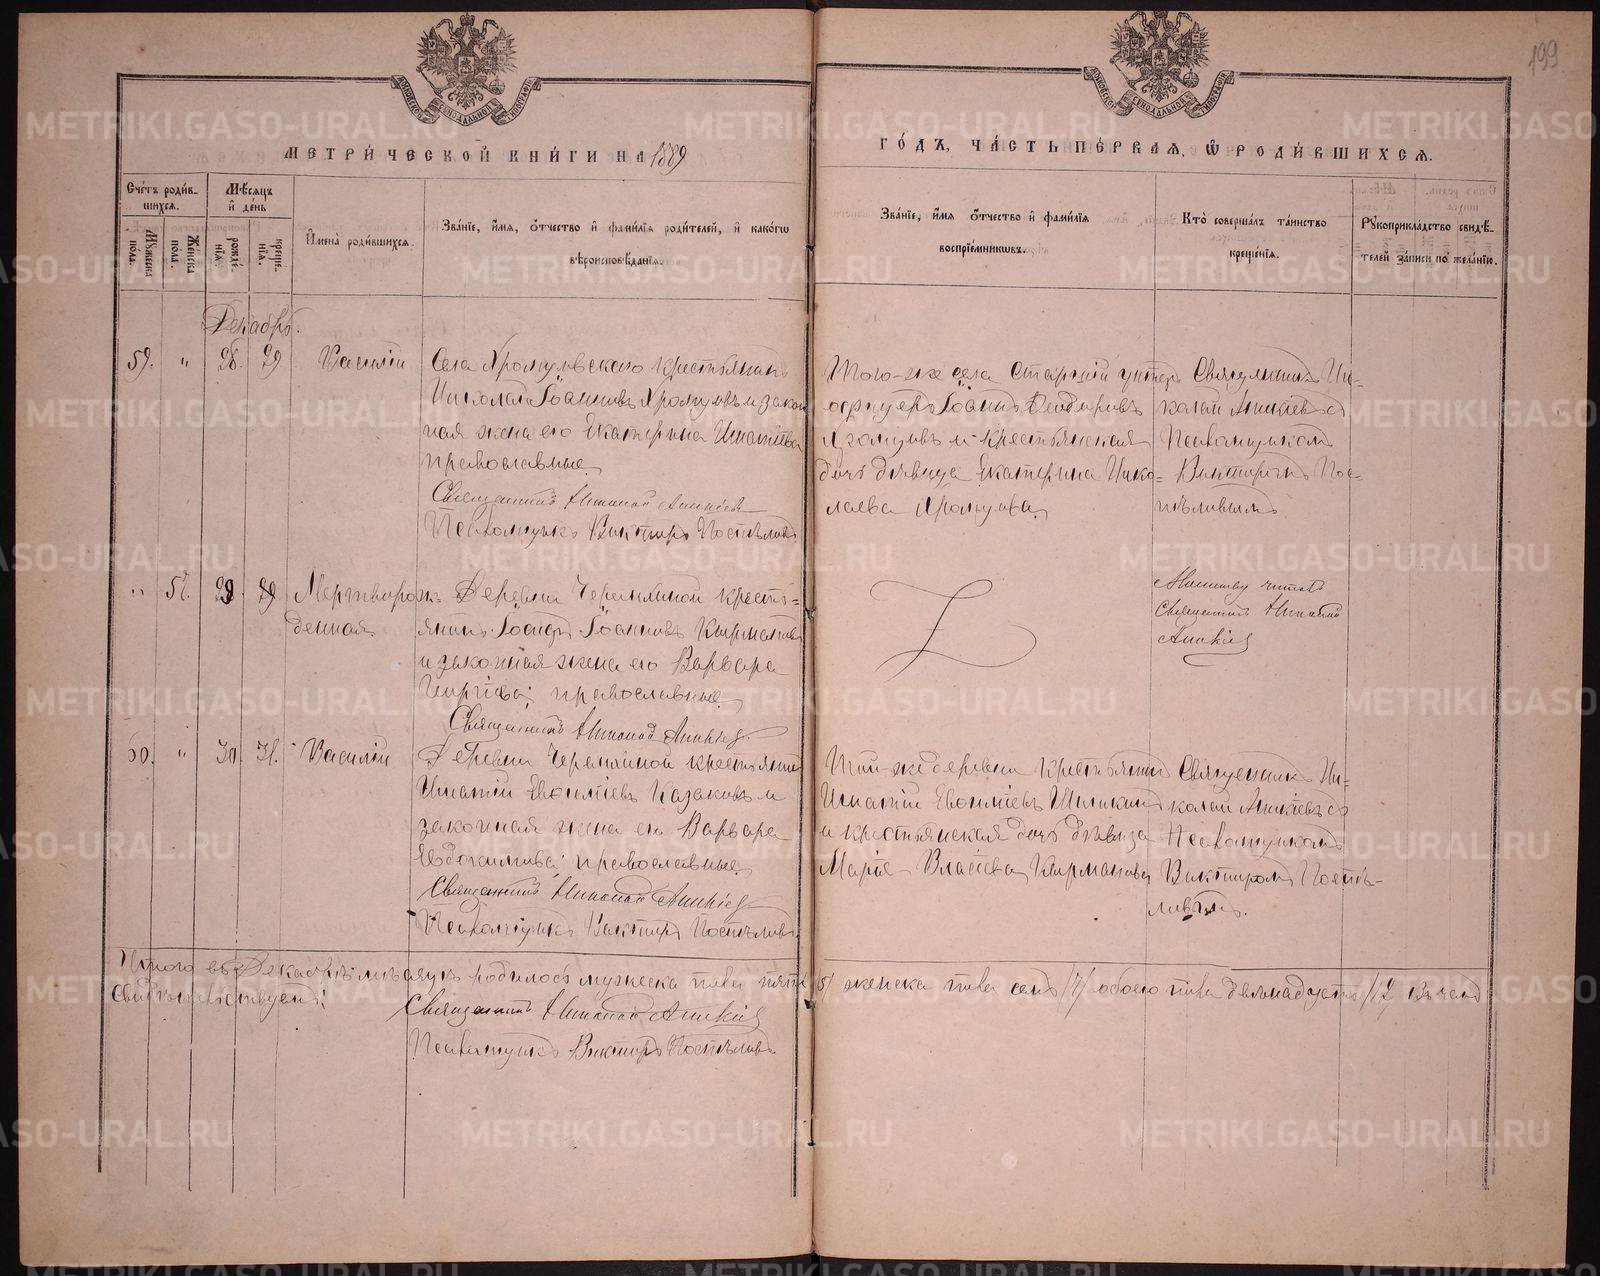 199
МЕТРИЧЕСКОЙ КНИГИ НА 1889
ГОДЪ, ЧАСТЬ ПЕРВАЯ, Ѡ РОДИВШИХСЯ.
Счетъ родив-
шихся.
Мужеска пола.
Женска пола.
Мѣсяцъ и день
рожденія.
крещенія.
Имена родившихся.
Званіе, имя, отчество и фамилія родителей, и какогѡ
вѣроисповѣданія.
Званіе, имя отчество и фамилія
воспріемниковъ.
Кто совершалъ таинство
крещенія.
Рукоприкладство свидѣ-
телей записи по желанію.
Декабрь.
59. " 28. 29. Василій
Села Хромцовскаго крестьянинъ
Николай Іоанновъ Хромцовъ и закон
ная жена его Екатерина Игнатьева
православные.
Священникъ Николай Аникіевъ
Псаломщикъ Викторъ Поспѣловъ
Того-же села старшій унтеръ
офицеръ Іоаннъ Ѳеодоровъ
Хромцовъ и крестьянская
дочь дѣвица Екатерина Нико-
лаева Хромцова.
Священникъ Ни-
колай Аникіевъ съ
Псаломщикомъ
Викторомъ Пос-
пѣловымъ.
" 52. 28. 29 Мертворож-
денная
Деревни Черемхиной кресть-
янинъ Іосифъ Іоанновъ
и законная жена его Варвара
православные.
Священникъ Николай Аникіевъ
Молитву читалъ
Священникъ Николай
Аникіевъ
60. " 30. 31. Василій
Деревни Черемхиной крестьянинъ
Игнатій Евѳиміевъ Казаковъ и
законная жена его Варвара
православные.
Священникъ Николай Аникіевъ
Псаломщикъ Викторъ Поспѣловъ
Той-же деревни крестьянинъ
Игнатій Евѳиміевъ
и крестьянская дочь дѣвица
Марія
Священникъ Ни-
колай Аникіевъ съ
Псаломщикомъ
Викторомъ Поспѣ-
ловымъ.
Итого въ Декабрѣ мѣсяцѣ родилось мужеска пола пять /5/ женска пола семь /7/ обоего пола двѣнадцать /12/
Свидѣтельствуетъ:
Священникъ Николай Аникіевъ
Псаломщикъ Викторъ Поспѣловъ.
METRIKI.GASO-URAL.RU